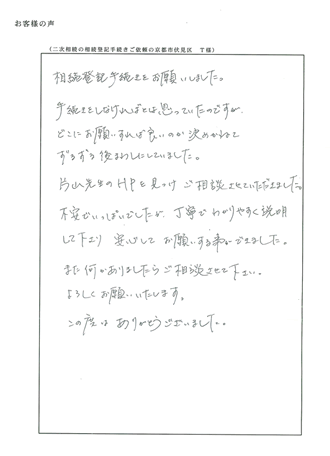 お客様の声
(二次相続の相続登記手続きご依頼の京都市伏見区　T様)
相続登記手続きをお願いしました。
手続きをしなければとは思っていたのですが
どこにお願いすれば良いのか決めかねて
ずるずる後まわしにしていました。
片山先生のHPを見つけ ご相談させていただきました。
不安でいっぱいでしたが、丁寧でわかりやすく説明
して下さり 安心して お願いする事ができました。
また何かありましたらご相談させて下さい。
よろしくお願いいたします。
この度は ありがとうございました。